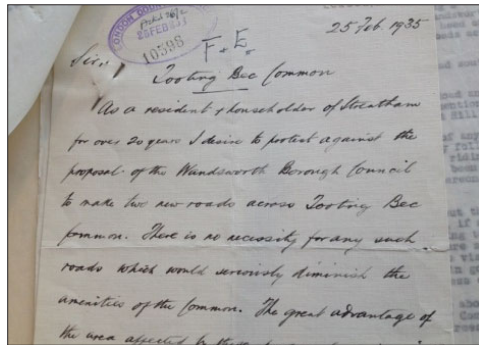 LONDON COUN
25 FEB 193
10598
25 Feb 1935
F & E.
Sir,
Tooting Bec Common
As a resident & householder of Streatham
for over 20 years I desire to protest against the
proposal of the Wandsworth Borough Council
to make two new roads across Tooting Bec
Common. There is no necessity for any such
roads which would seriously diminish the
amenities of the Common. The great advantage of
the area affected by these